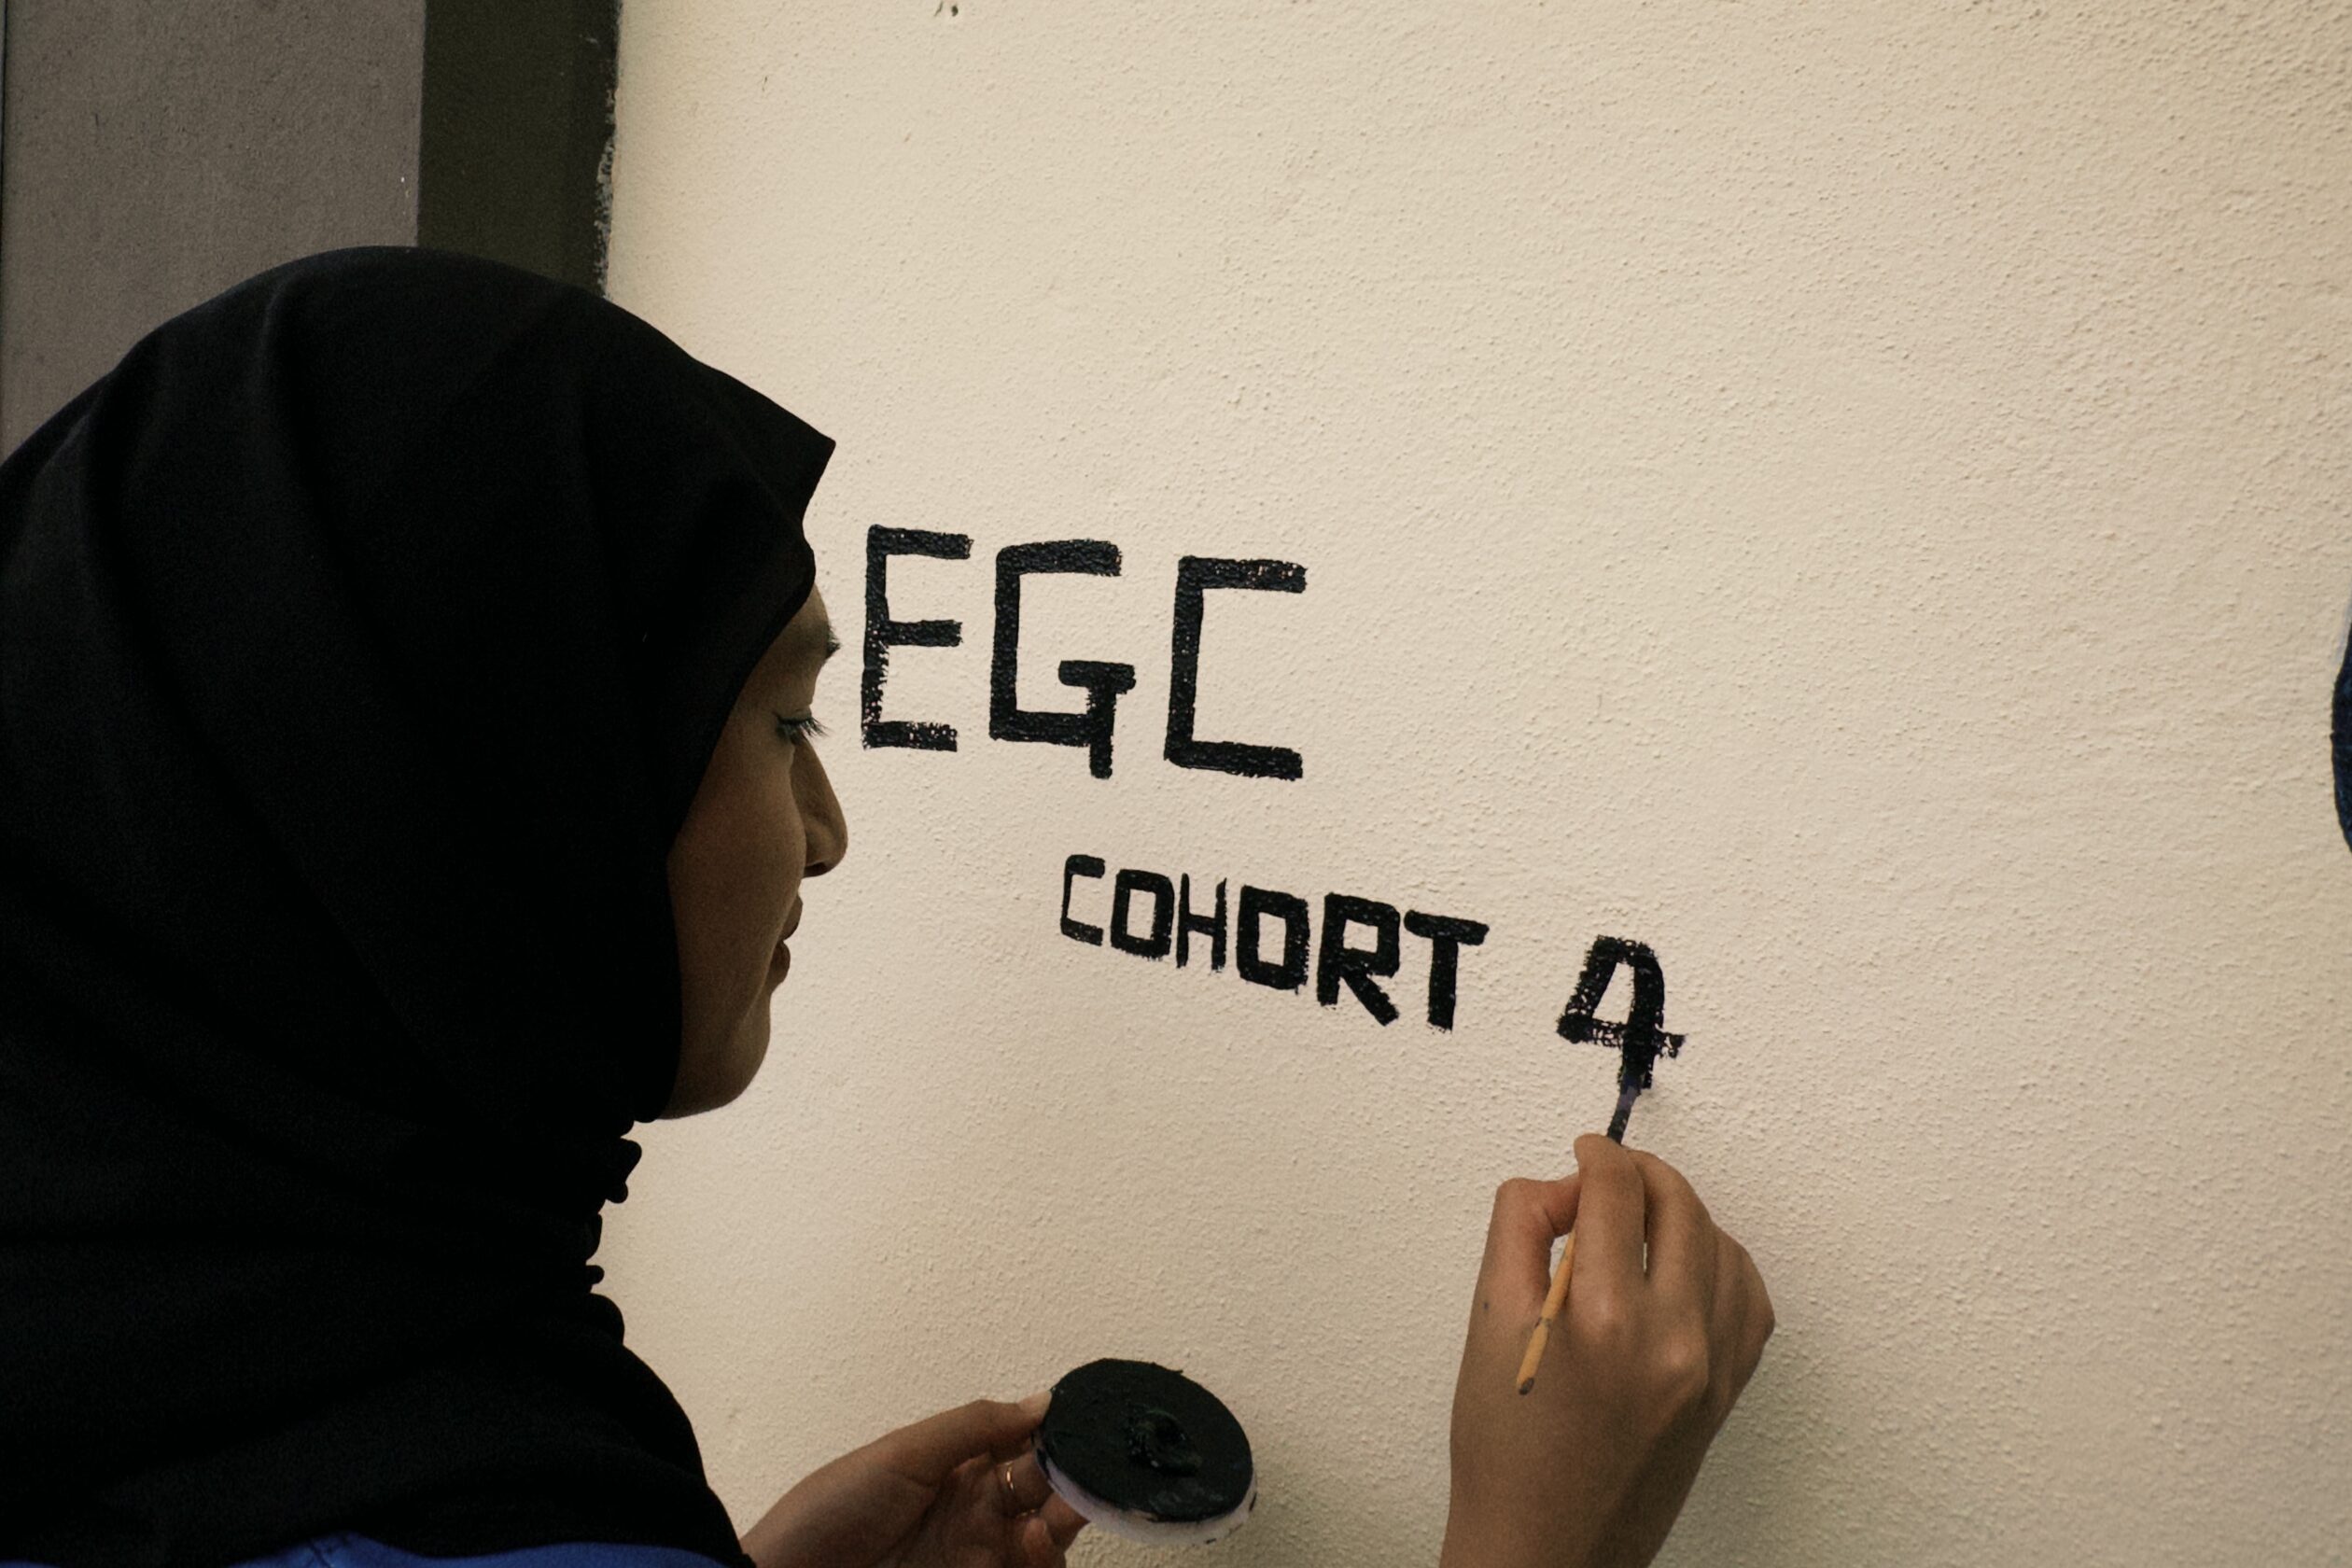 EGC
COHORT 4